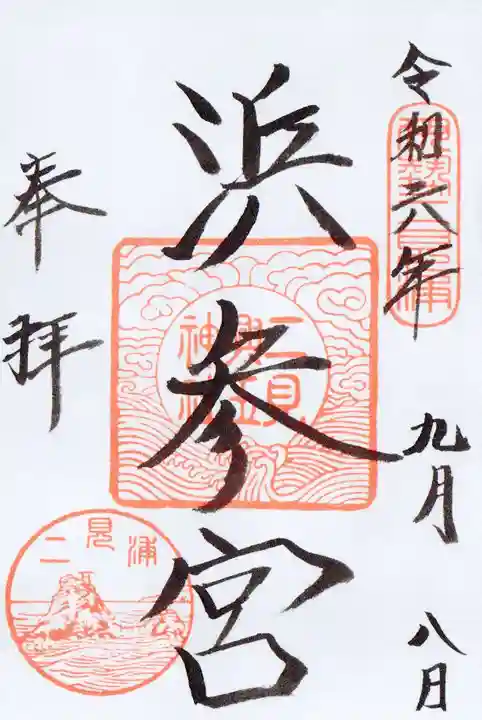 伊勢二見浦
令和六年 九月 八日
浜参宮
二見興玉神社
奉拝
二見浦